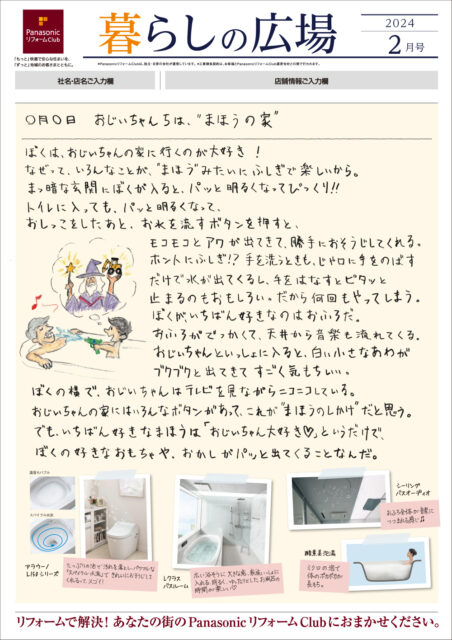 Panasonic
リフォームClub
「もっと」快適で安心な住まいを、
「ずっと」地域のお客さまとともに。
暮らしの広場
2024
2月号
社名・店名ご入力欄
店舗情報ご入力欄
〇月〇日 おじいちゃんちは、“まほうの家”
ぼくは、おじいちゃんの家に行くのが大好き！
なぜって、いろんなことが、“まほう”みたいにふしぎで楽しいから。
まっ暗な玄関にぼくが入ると、パッと明るくなってびっくり!!
トイレに入っても、パッと明るくなって、
おしっこをしたあと、お水を流すボタンを押すと、
モコモコとアワが出てきて、勝手におそうじしてくれる。
ホントにふしぎ!? 手を洗うときも、じゃ口に手をのばす
だけで水が出てくるし、手をはなすとピタッと
止まるのもおもしろい。だから何回もやってしまう。
ぼくが、いちばん好きなのはおふろだ。
おふろがでっかくて、天井から音楽も流れてくる。
おじいちゃんといっしょに入ると、白い小さなあわが
ブクブクと出てきてすごく気もちいい。
ぼくの横で、おじいちゃんはテレビを見ながらニコニコしている。
おじいちゃんの家にはいろんなボタンがあって、これが“まほうのしかけ”だと思う。
でも、いちばん好きなまほうは「おじいちゃん大好き♡」というだけで、
ぼくの好きなおもちゃや、おかしがパッと出てくることなんだ。
スパイラル水流
アラウーノ
L150シリーズ
Lクラス
バスルーム
シーリング
バスオーディオ
おふろ全体が音楽に
つつまれる感じ♫
酸素美泡湯
ミクロの泡で
体のポカポカが
長もち。
リフォームで解決！あなたの街のPanasonicリフォームClubにおまかせください。